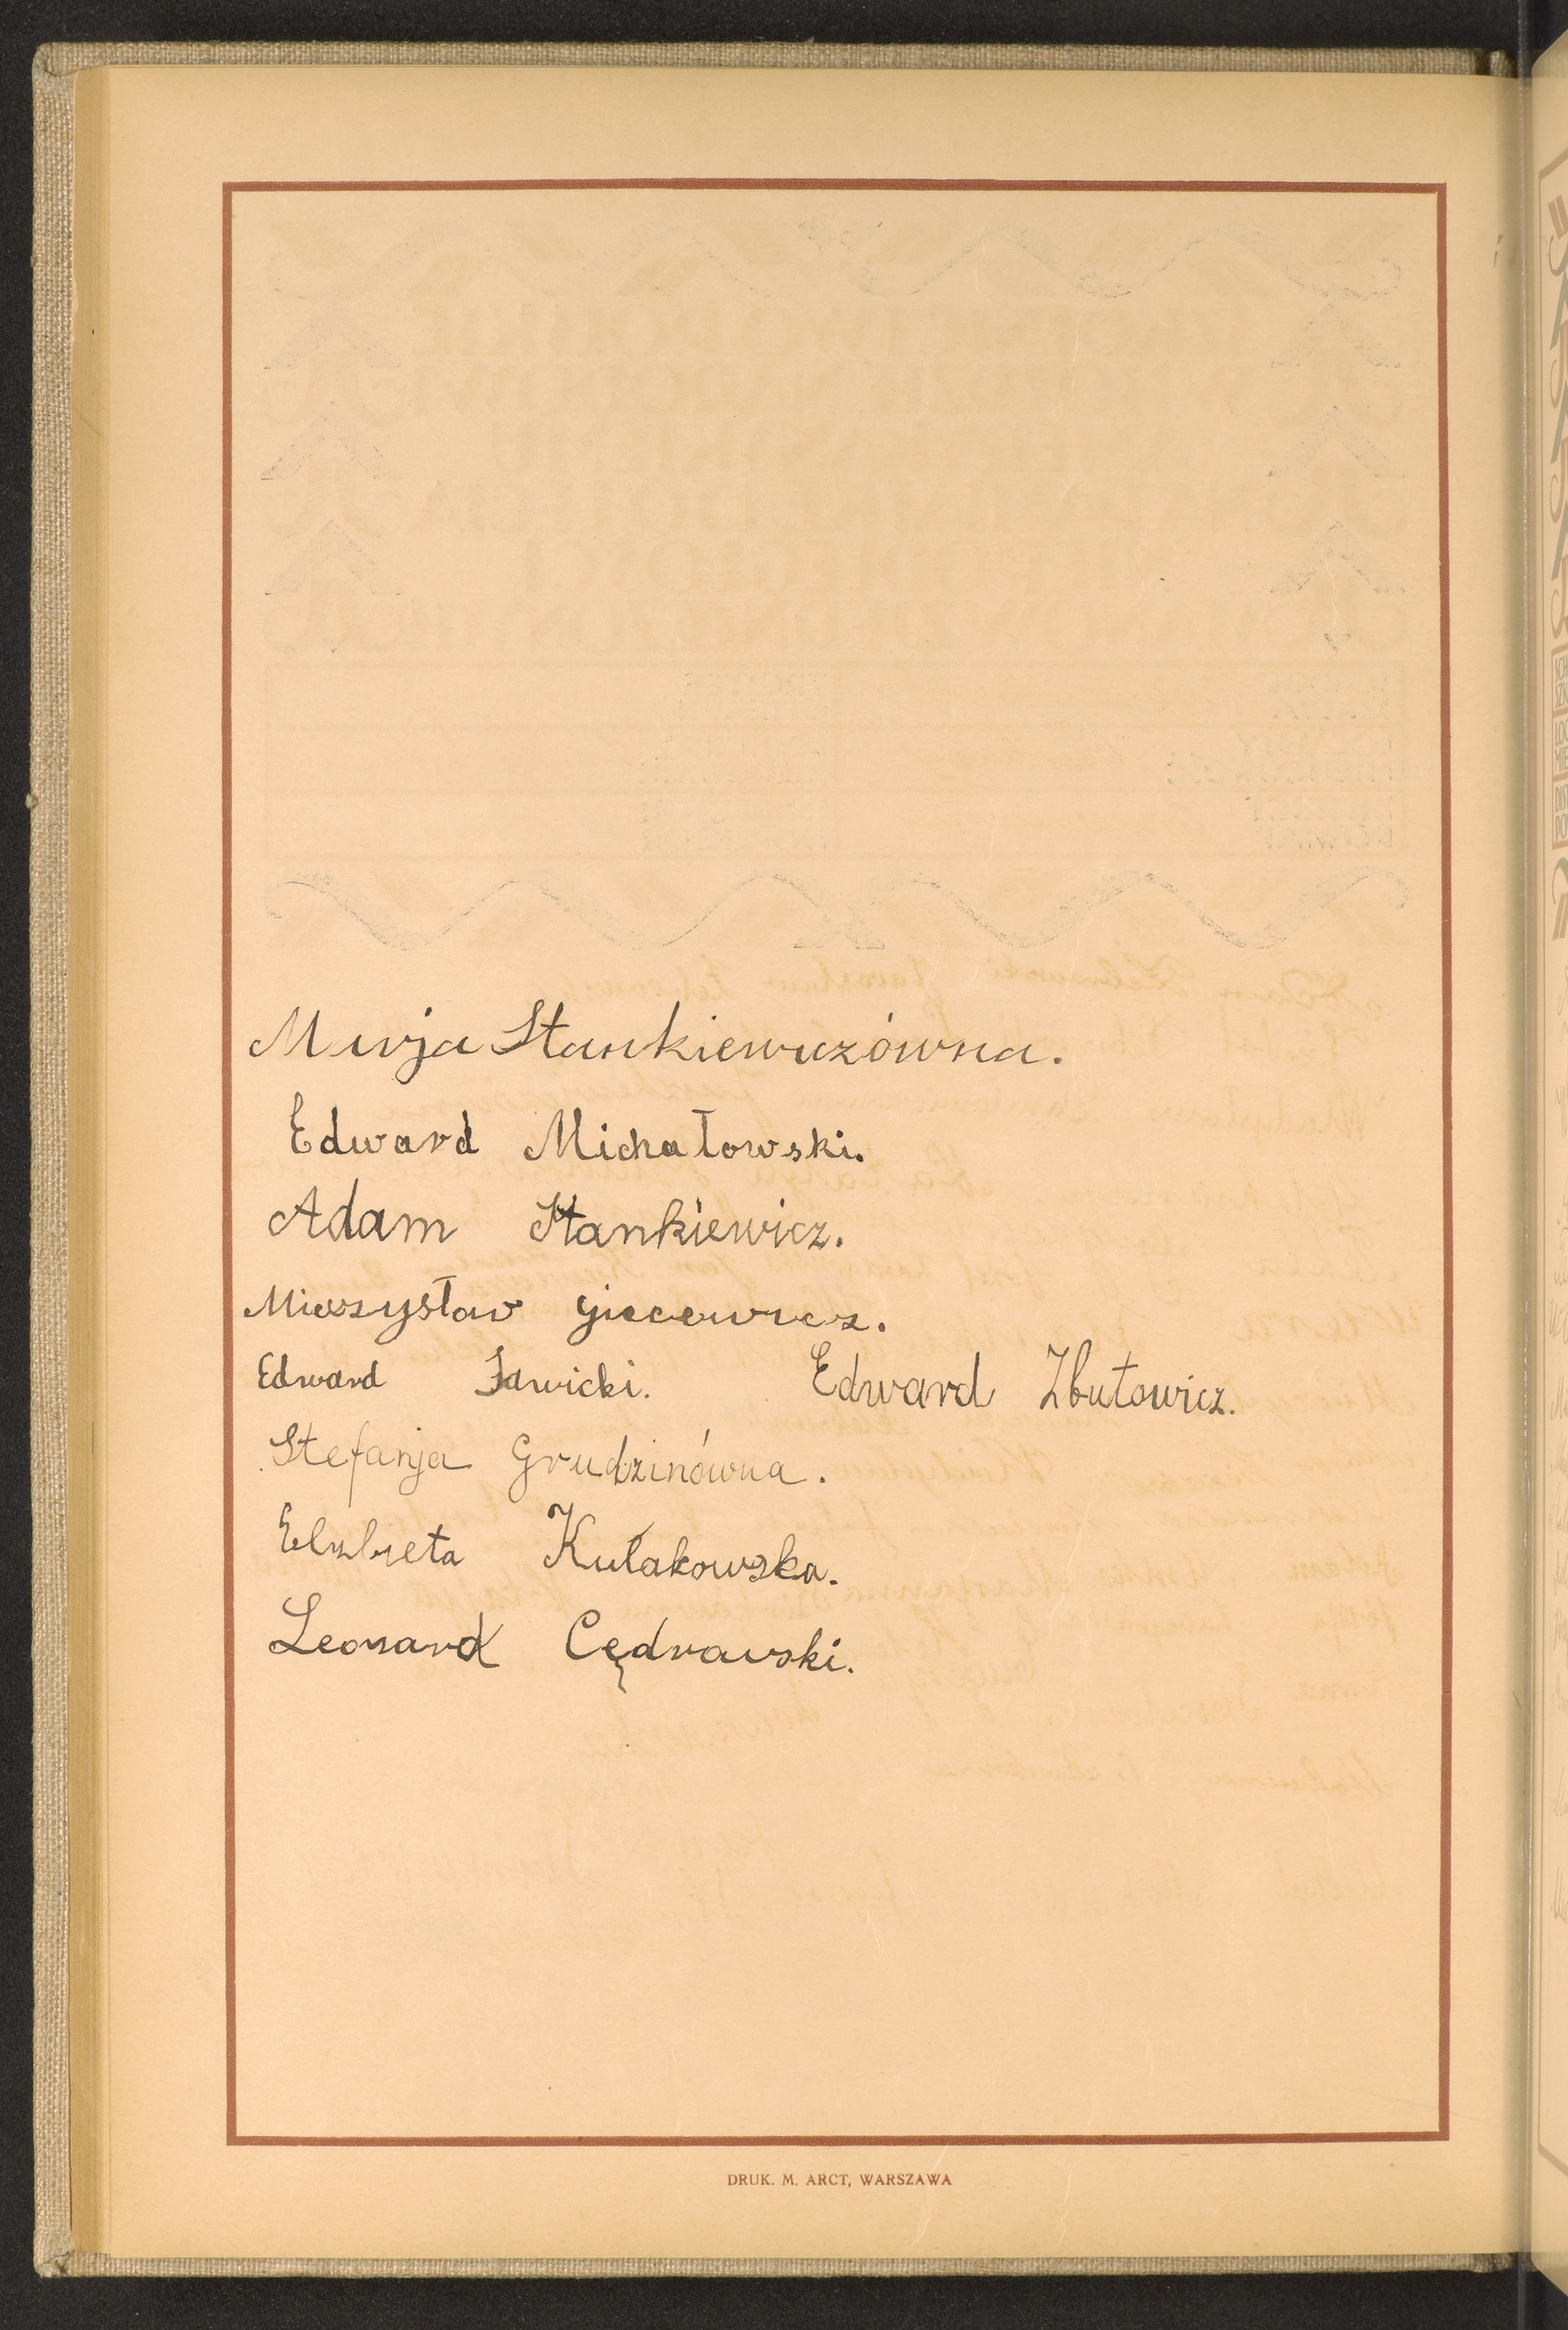 Marja Stankiewiczówna.
Edward Michałowski.
Adam Stankiewicz.
Mieczysław Giecewicz.
Edward Sawicki. Edward Zbutowicz.
Stefanja Grudzinówna.
Elżbieta Kułakowska.
Leonard Cędrowski.
DRUK. M. ARCT, WARSZAWA